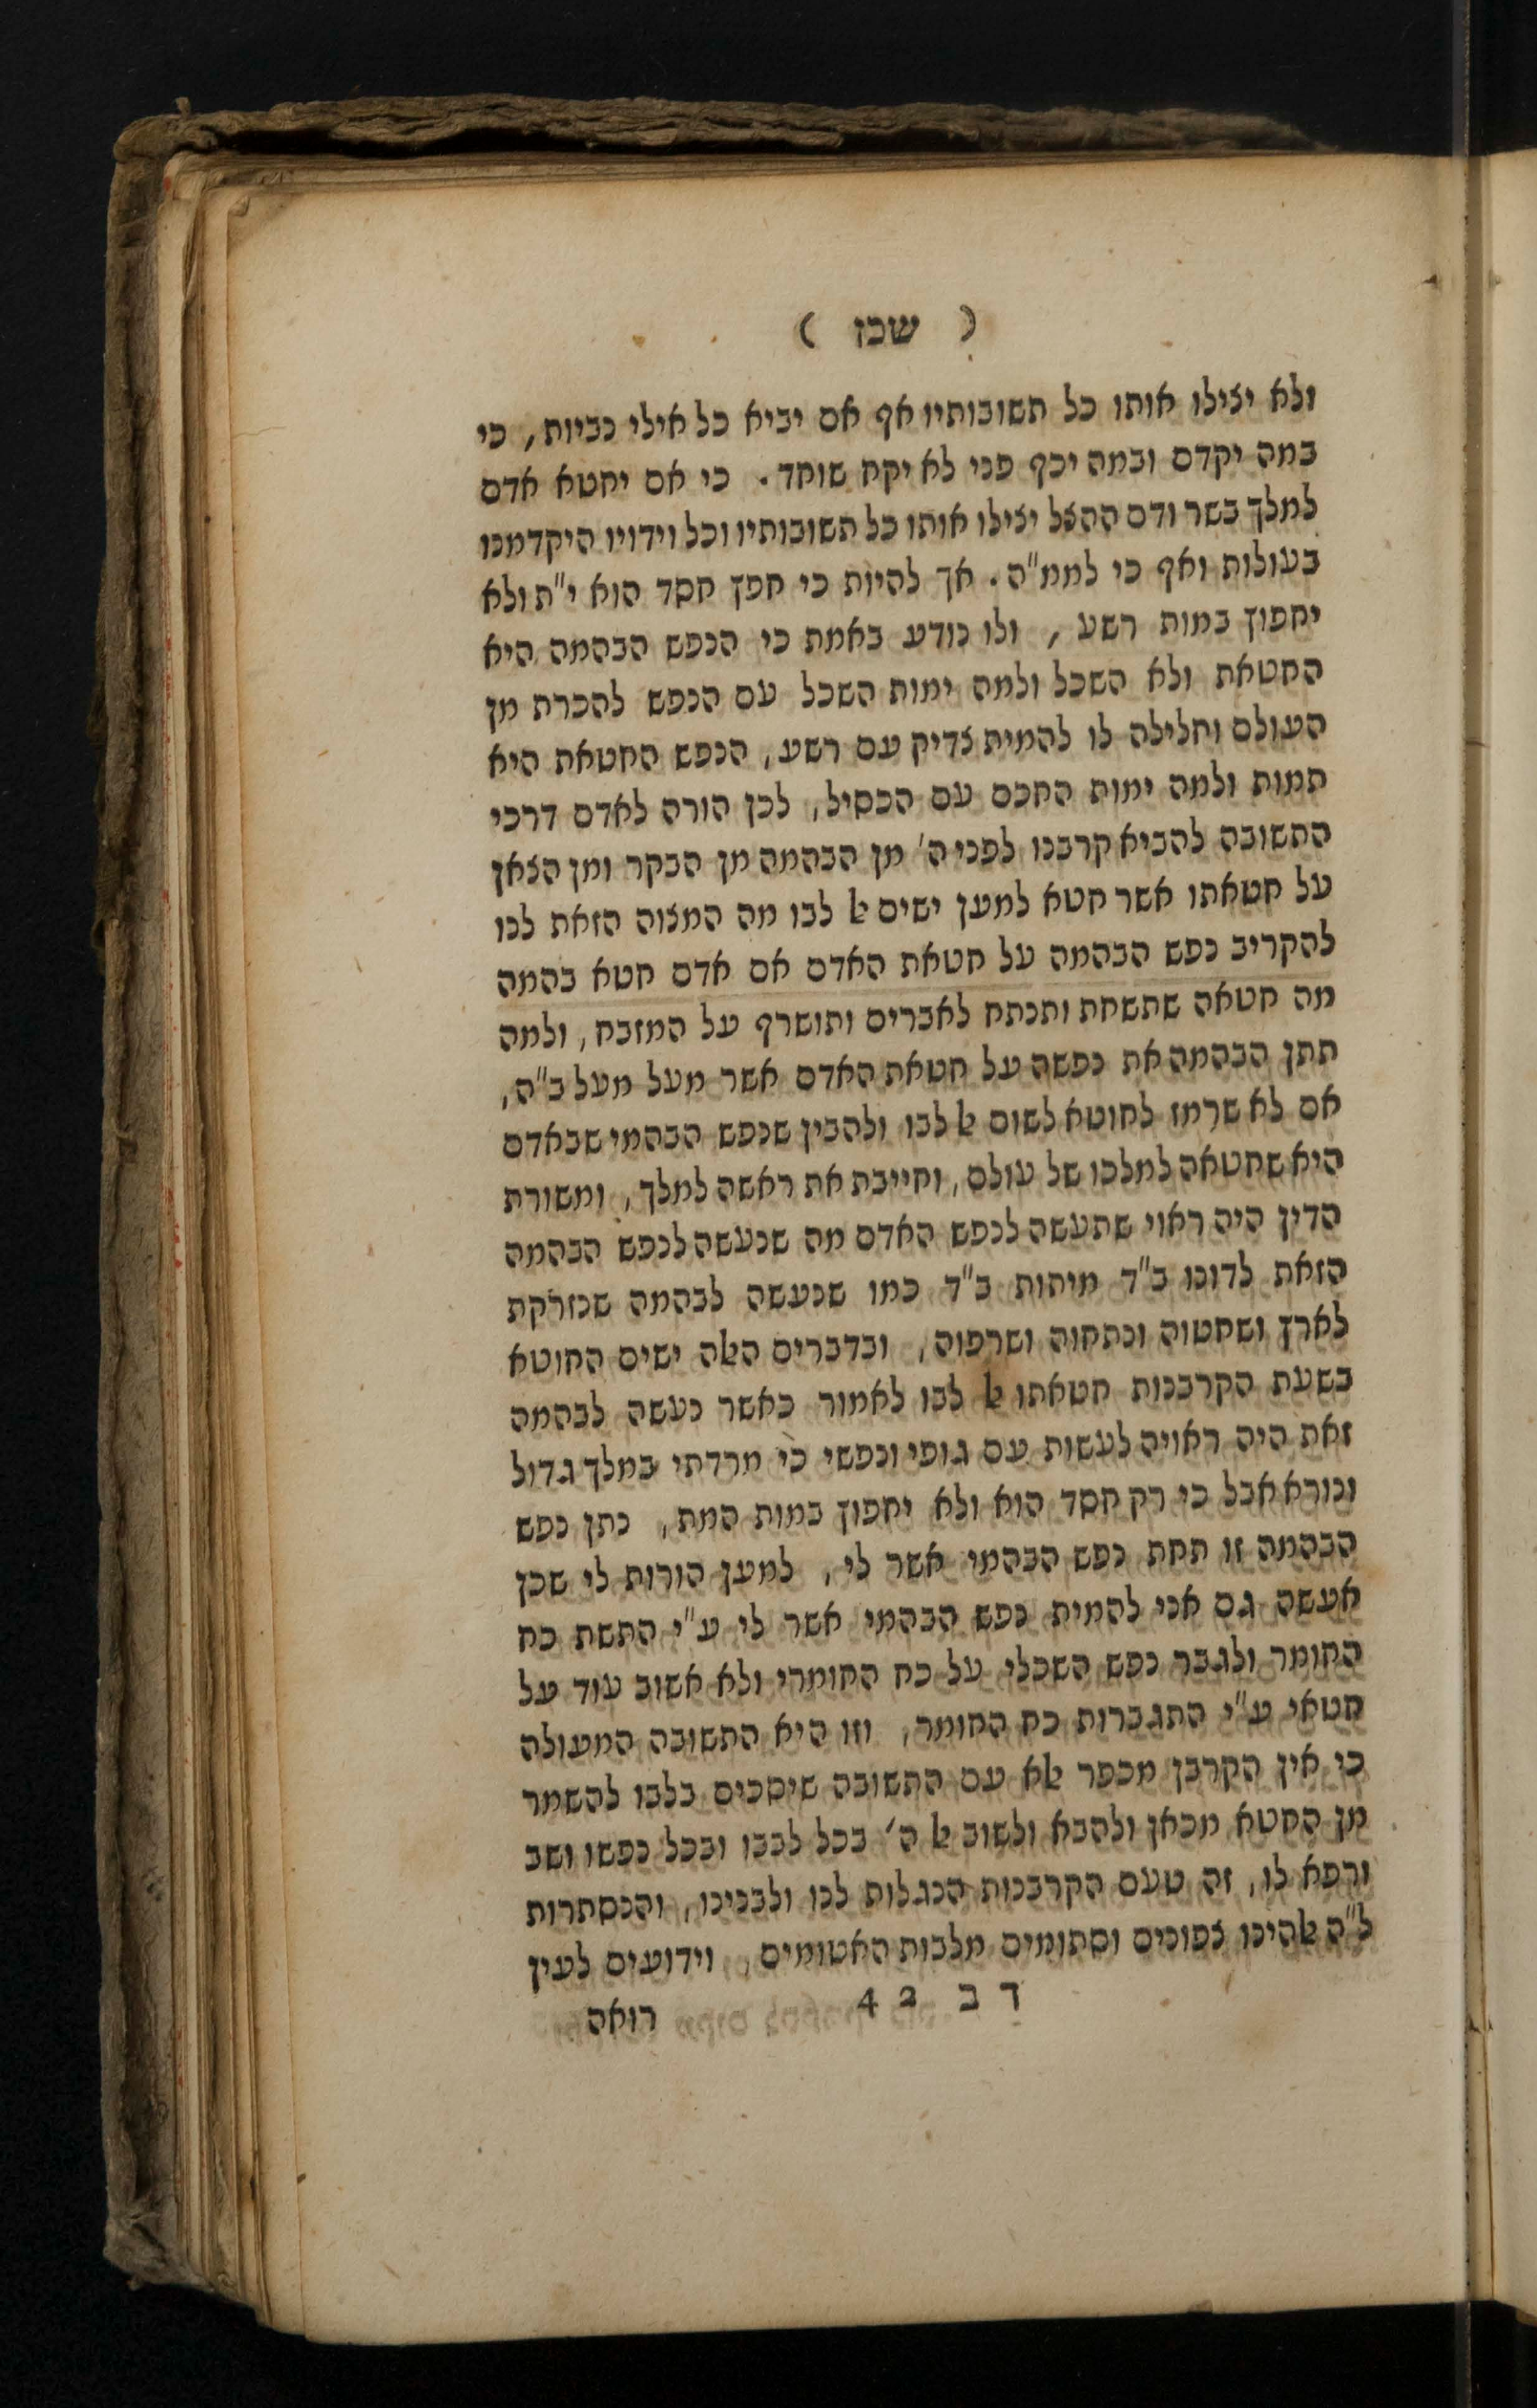 ( שכז )
ולא יצילו אותו כל תשובותיו אף אם יביא כל אילי נביות, כי
במה יקדם ובמה יכף פני לא יקח שוחד. כי אם יחטא אדם
למלך בשר ודם ההצל יצילו אותו כל תשובותיו וכל וידויו היקדמנו
בעולות ואף כי לממ"ה. אך להיות כי חפץ חסד הוא י"ת ולא
יחפוץ במות רשע, ולו נודע באמת כי הנפש הבהמה היא
החטאת ולא השכל ולמה ימות השכל עם הנפש להכרת מן
העולם וחלילה לו להמית צדיק עם רשע, הנפש החטאת היא
תמות ולמה ימות החכם עם הכסיל, לכן הורה לאדם דרכי
התשובה להביא קרבנו לפני ה' מן הבהמה מן הבקר ומן הצאן
על חטאתו אשר חטא למען ישים אל לבו מה המצוה הזאת לנו
להקריב נפש הבהמה על חטאת האדם אם אדם חטא בהמה
מה חטאה שתשחת ותנתח לאברים ותושרף על המזבח, ולמה
תתן הבהמה את נפשה על חטאת האדם אשר מעל מעל ב"ה,
אם לא שרמז לחוטא לשום אל לבו ולהבין שנפש הבהמי שבאדם
היא שחטאה למלכו של עולם, וחייבת את ראשה למלך, ומשורת
הדין היה ראוי שתעשה לנפש האדם מה שנעשה לנפש הבהמה
הזאת לדונו ב"ד מיתות ב"ד כמו שנעשה לבהמה שנזרקת
לארץ ושחטוה ונתחוה ושרפוה, ובדברים האלה ישים החוטא
בשעת הקרבנות חטאתו אל לבו לאמור כאשר נעשה לבהמה
זאת היה ראויה לעשות עם גופי ונפשי כי מרדתי במלך גדול
ונורא אבל כי רק חסד הוא ולא יחפוץ במות המת, נתן נפש
הבהמה זו תחת נפש הבהמי אשר לי, למען הורות לי שכן
אעשה גם אני להמית נפש הבהמי אשר לי ע"י התשת כח
החומר ולגבר נפש השכלי על כח החומרי ולא אשוב עוד על
חטאי ע"י התגברות כח החומר, וזו היא התשובה המעולה
כי אין הקרבן מכפר אלא עם התשובה שיסכים בלבו להשמר
מן החטא מכאן ולהבא ולשוב אל ה' בכל לבבו ובכל נפשו ושב
ורפא לו, זה טעם הקרבנות הנגלות לנו ולבנינו, והנסתרות
ל"ה אלהינו צפונים וסתומים מלבות האטומים, וידועים לעין
ד ב 42 רואה